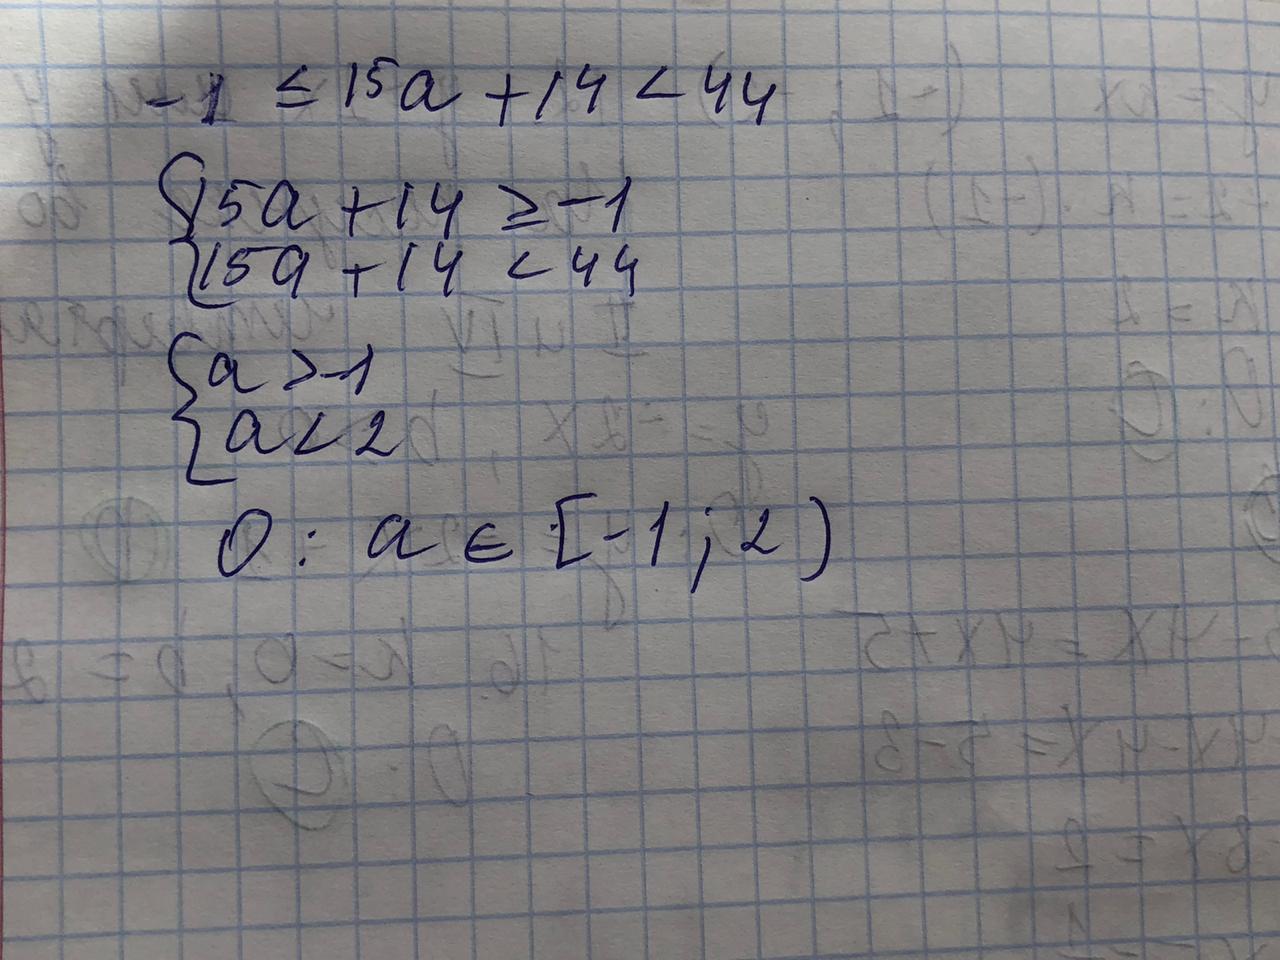 -1 ≤ 15a + 14 < 44
{ 15a + 14 ≥ -1
{ 15a + 14 < 44
{ a > -1
{ a < 2
O: a ∈ [-1; 2)